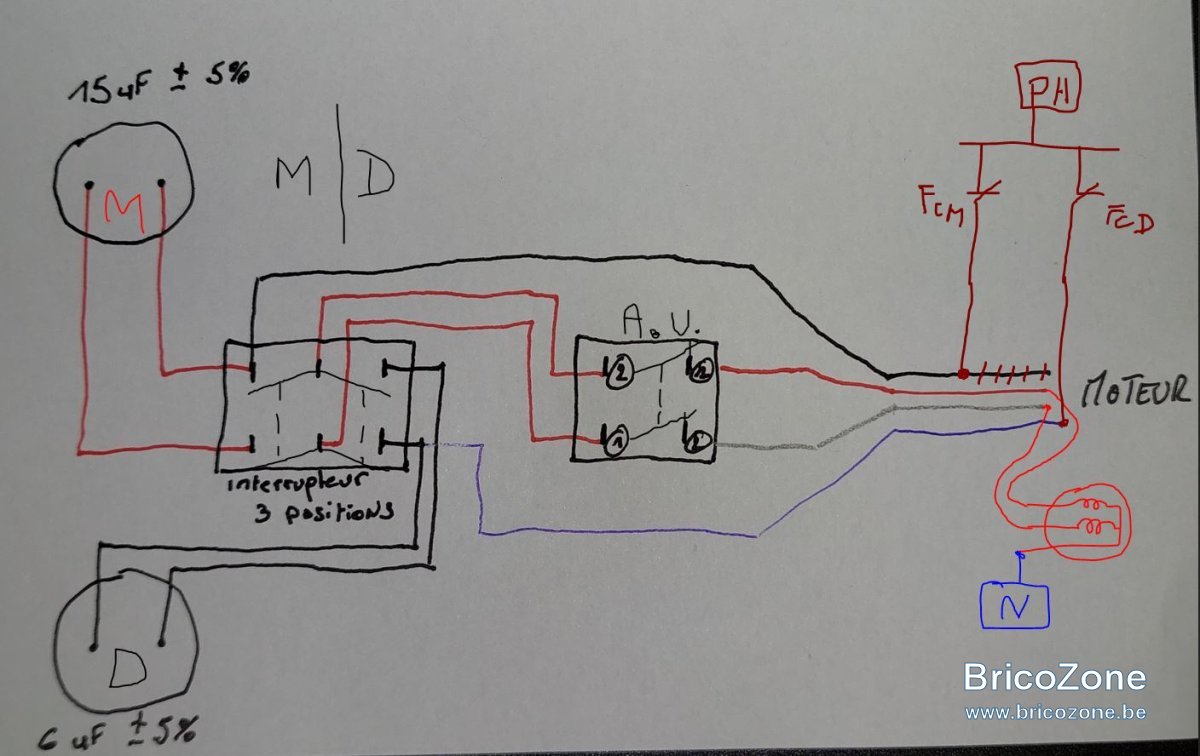 15 uF ± 5%
PH
M
M | D
FCM
FCD
A.V.
2 2
MOTEUR
1 1
interrupteur
3 positions
N
D
6 uF ± 5%
BricoZone
www.bricozone.be